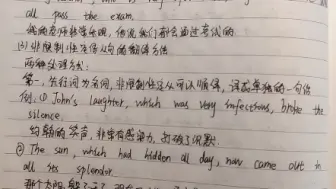 all pass the exam.
我的老师非常乐观，他说我们都会通过考试的
(3) 非限制性定语从句的翻译方法
两种处理方式：
第一，先行词为名词，非限制性定从可以顺译，译成单独的一句话
例，① John's laughter, which was very infectious, broke the
silence.
约翰的笑声，非常有感染力，打破了沉默.
② The sun, which had hidden all day, now came out in
all its splendor.
那个太阳，躲了一天，